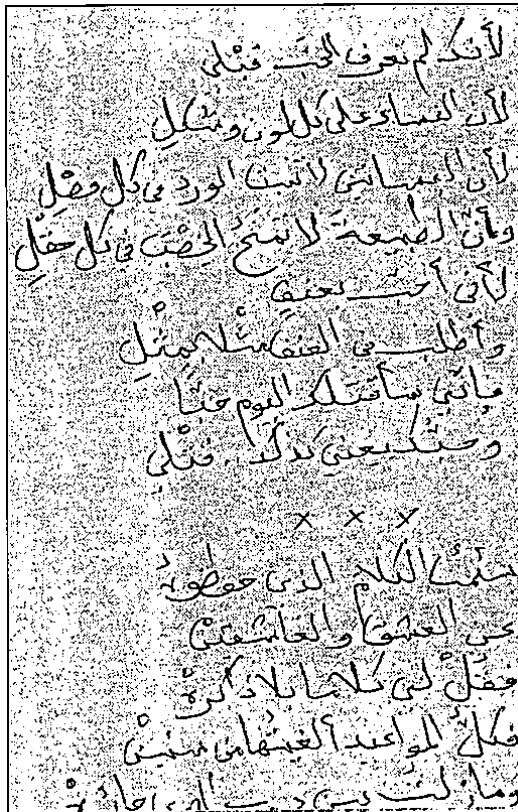 لأنك لم تعرف الحب قبلي
لأن النساء على كل لون وشكلِ
لأن البساتين لا تنبت الورد في كل فصْلِ
وأنّ الطبيعةَ لا تمنحُ الخِصْبَ في كل حقْلِ
لأني أحب بعنفٍ
وأطلب في العنف مثْلا بمِثْلِ
فإنّني سأقتلك اليوم حبّا
وحبّك يعني كذلك قتْلي
× × ×
سئمتُ الكلام الذي حفظوهُ
عن العشق والعاشقينْ
فقلْ لي كلاما بلا ذاكرهْ
فكلّ المواعيد ألغيتها من سنينْ
وما زلت